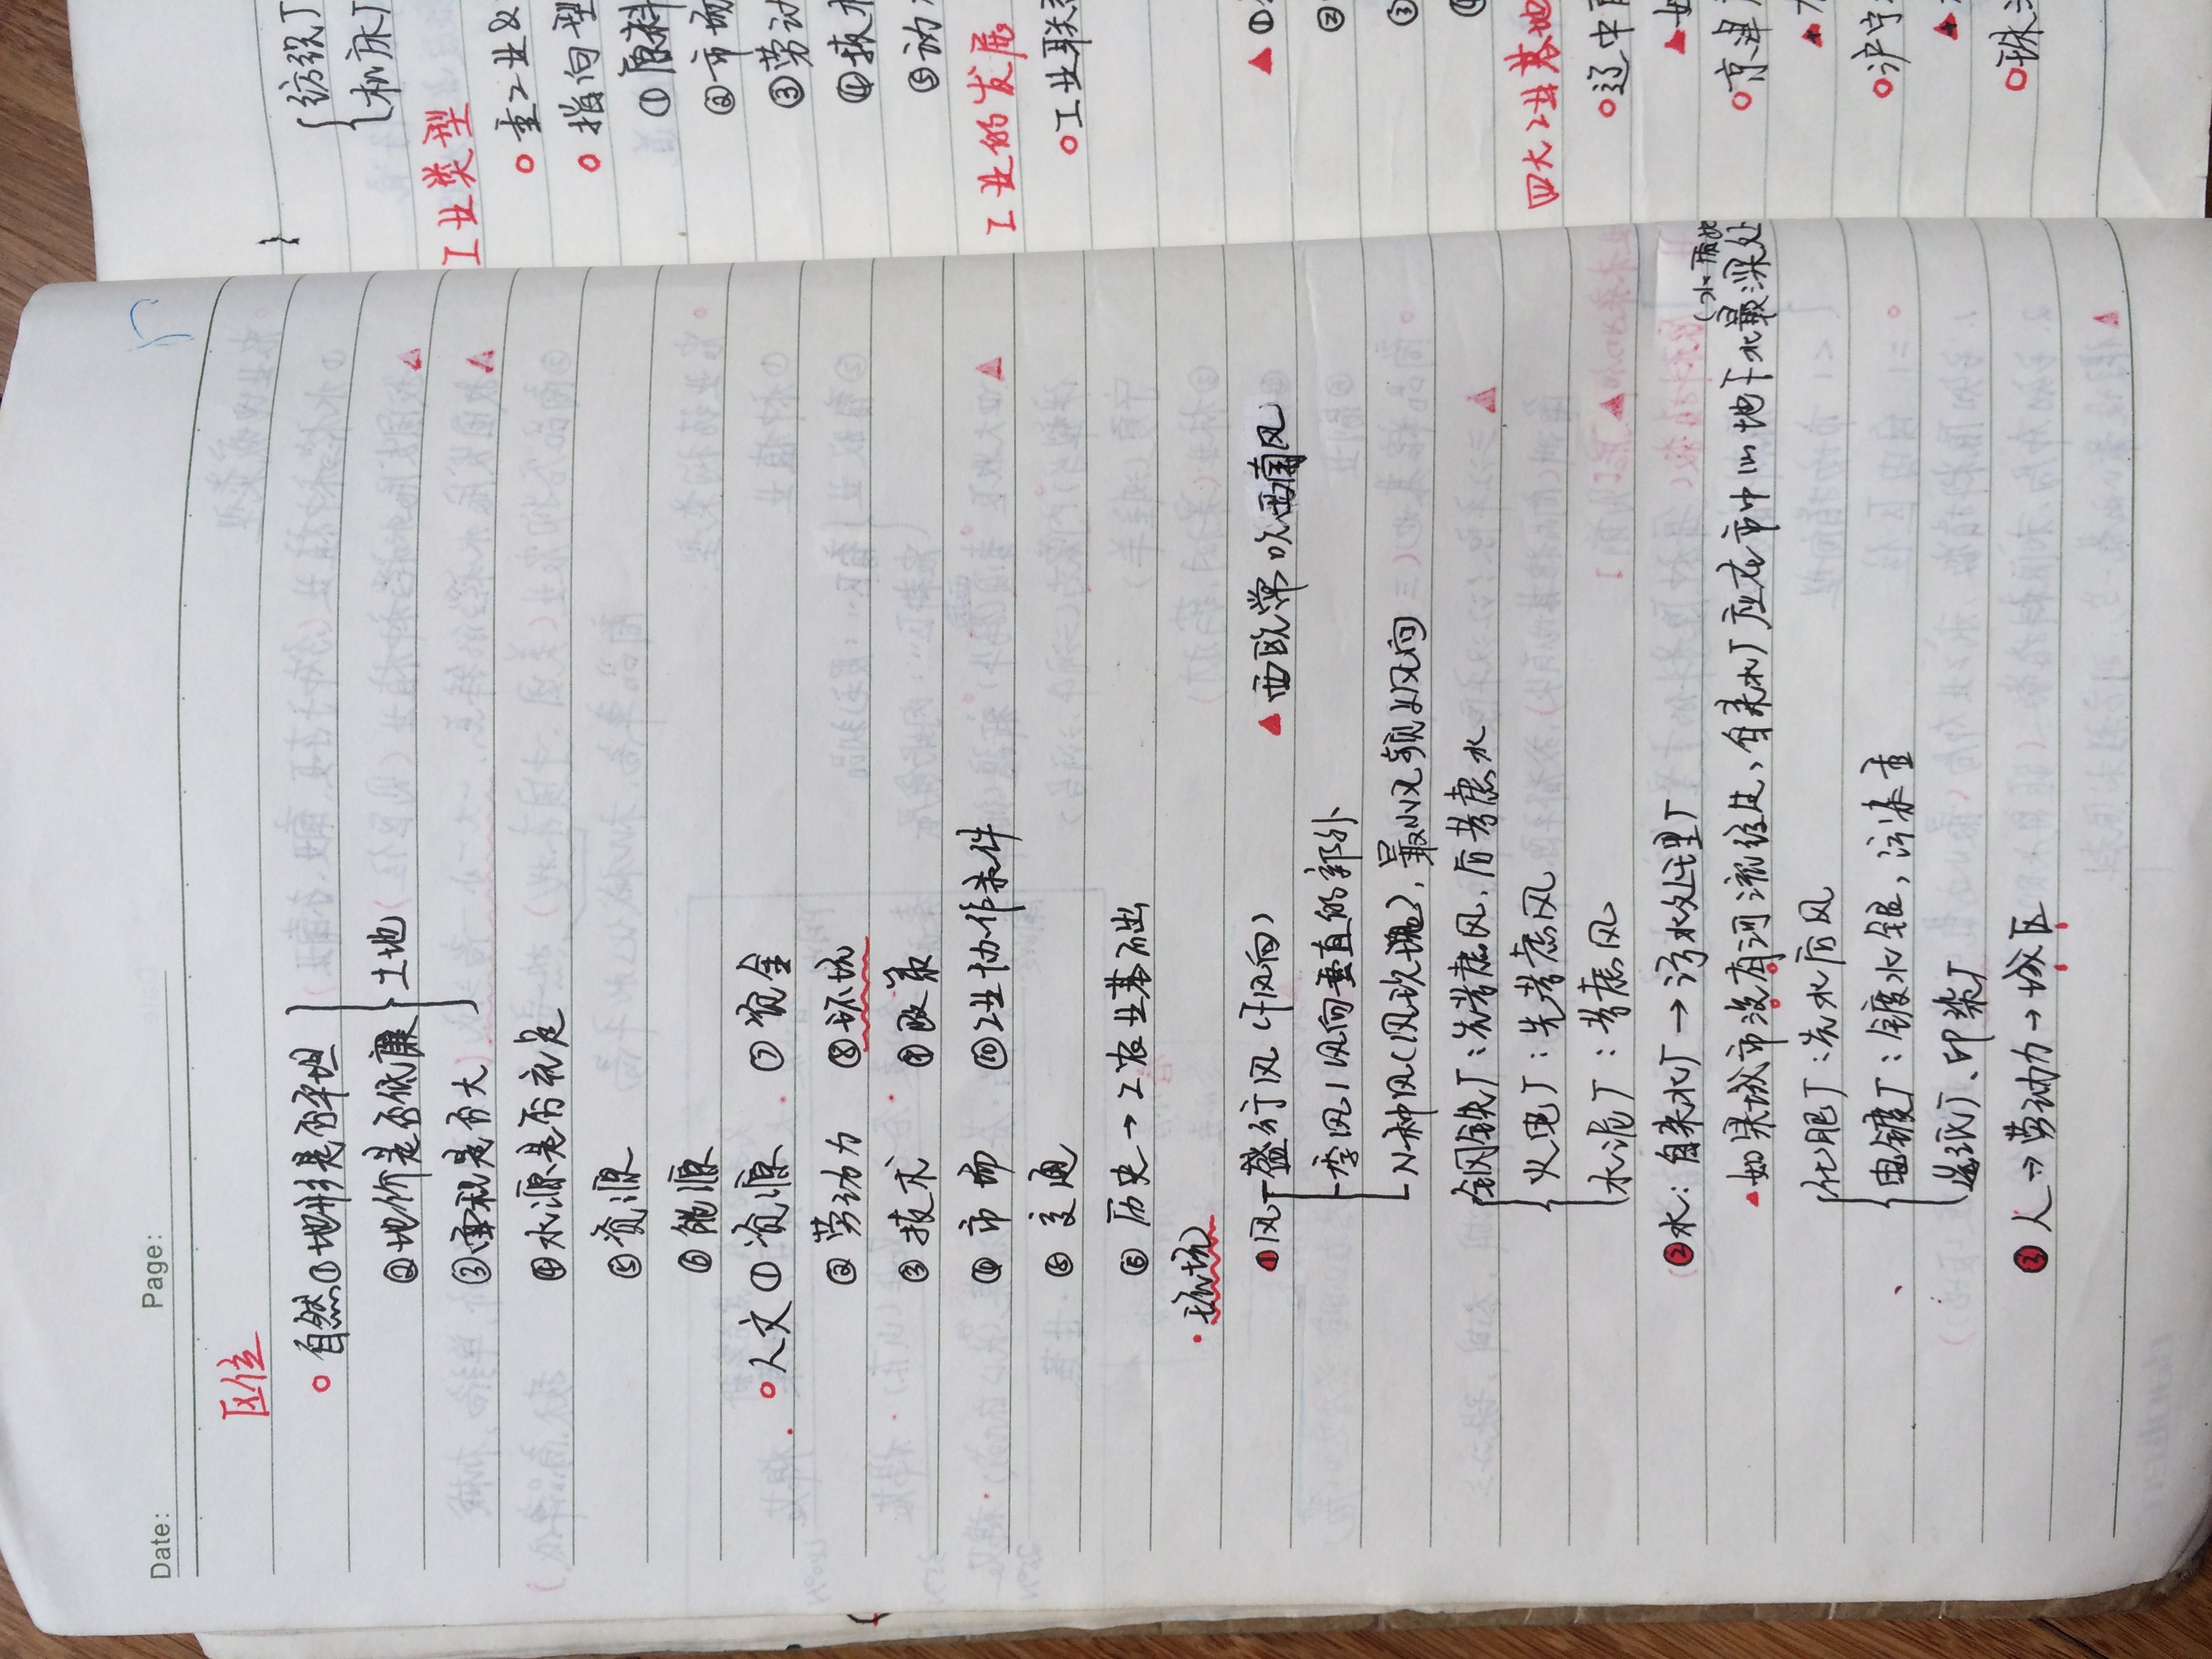 Date: Page:
区位
自然①地形是否平坦
②地价是否低廉
③面积是否大
土地
④水源是否充足
⑤资源
⑥能源
人文①资源 ⑦资金
②劳动力 ⑧环境
③技术 ⑨政策
④市场 ⑩工业协作条件
⑤交通
⑥历史→工农业基础
环境
①风 盛行风(下风向) ▲西欧常吹西南风
季风/风向垂直的郊外
N种风(风玫瑰),最小风频上风向
钢铁厂:先考虑风,后考虑水
火电厂:先考虑风
水泥厂:考虑风
②水:自来水厂→污水处理厂
▲如果城市没有河流经过,自来水厂应在市中心地下水最深处
(水质
化肥厂:先水后风
电镀厂:镀水银,污染重
造纸厂、印染厂
③人→劳动力→城区
纺织厂
机床厂
工业类型
重工业&
指向型
①原料
②市场
③劳动
④技
⑤动
工业的发展
工业联
▲①
②
③
④
四大工业基地
辽中
▲
京津
▲
沪宁
▲
珠